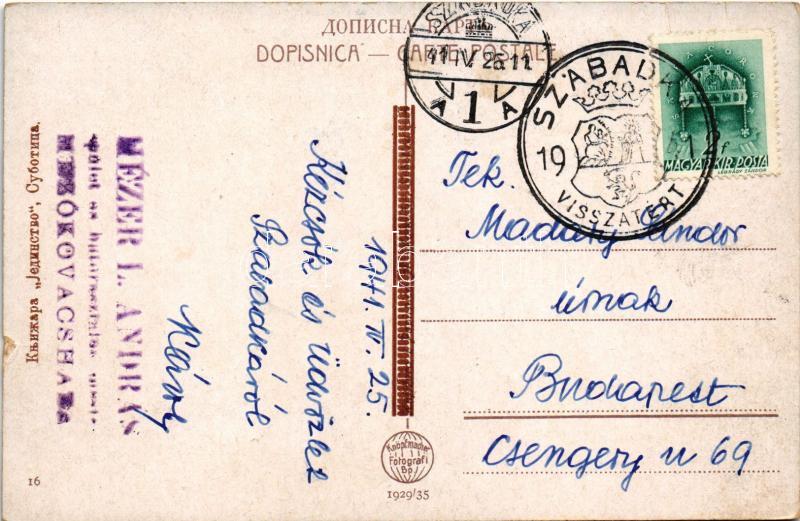 ДОПИСНА КАРТА
DOPISNICA — CARTE POSTALE
41.IV.25.11
A 1 A
SZABADKA
19
VISSZATÉRT
2f
MAGYAR KIR. POSTA
LÉGRÁDY SÁNDOR
Tek.
Madály Sándor
úrnak
Budapest
Csengery u 69
1941. IV. 25.
Kézcsók és Üdvözlet
Szabadkáról
Károly
MÉZER L. ANDRÁS
MEZŐKOVACSHAZA
Књижара „Јединство", Суботица.
16
Fotografi
Bp
1929/35